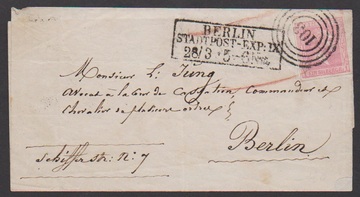 BERLIN
STADTPOST-EXP: IX
28/3 · 5-6 N
103
Monsieur L: Jung
avocat à la Cour de Cassation Commandeur et
Chevalier de plusieurs ordres
Berlin
Schifferstr: N: 7